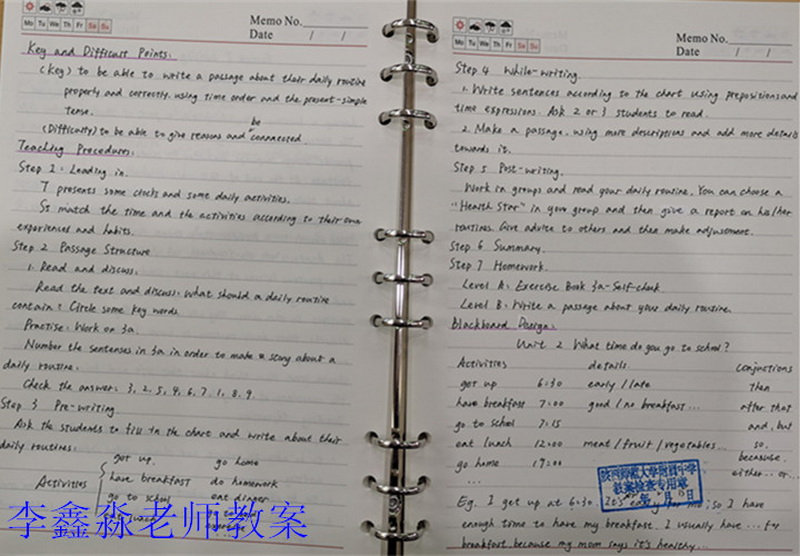 Mo Tu We Th Fr Sa Su
Memo No.
Date / /
Key and Difficult Points:
(Key) to be able to write a passage about their daily routine
properly and correctly using time order and the present-simple
tense.
(Difficulty) to be able to give reasons and be connected.
Teaching Procedures:
Step 1: Leading in.
T presents some clocks and some daily activities.
Ss match the time and the activities according to their own
experiences and habits.
Step 2 Passage Structure
1. Read and discuss.
Read the text and discuss: What should a daily routine
contain? Circle some key words.
Practise: Work on 3a.
Number the sentences in 3a in order to make a story about a
daily routine.
Check the answer: 3, 2, 5, 4, 6, 7, 1, 8, 9.
Step 3 Pre-writing
Ask the students to fill in the chart and write about their
daily routines:
Activities
get up. go home
have breakfast do homework
go to school eat dinner
李鑫淼老师教案
Mo Tu We Th Fr Sa Su
Memo No.
Date / /
Step 4 While-writing.
1. Write sentences according to the chart using prepositions and
time expressions. Ask 2 or 3 students to read.
2. Make a passage, using more descriptions and add more details
towards it.
Step 5 Post-writing.
Work in groups and read your daily routine. You can choose a
"Health Star" in your group and then give a report on his/her
routines. Give advice to others and then make adjustment.
Step 6 Summary.
Step 7 Homework.
Level A: Exercise Book 3a-Self-check
Level B: Write a passage about your daily routine.
Blackboard Design:
Unit 2 What time do you go to school?
Activities details conjuctions
get up 6:30 early / late then
have breakfast 7:00 good / no breakfast... after that
go to school 7:15 and, but
eat lunch 12:00 meat / fruit / vegetables... so.
go home 17:00 because.
... either... or...
陕西师范大学附属中学
教案检查专用章
年 月 日
Eg. I get up at 6:30. It's early for me, so I have
enough time to have my breakfast. I usually have ... for
breakfast because my mom says it's healthy...